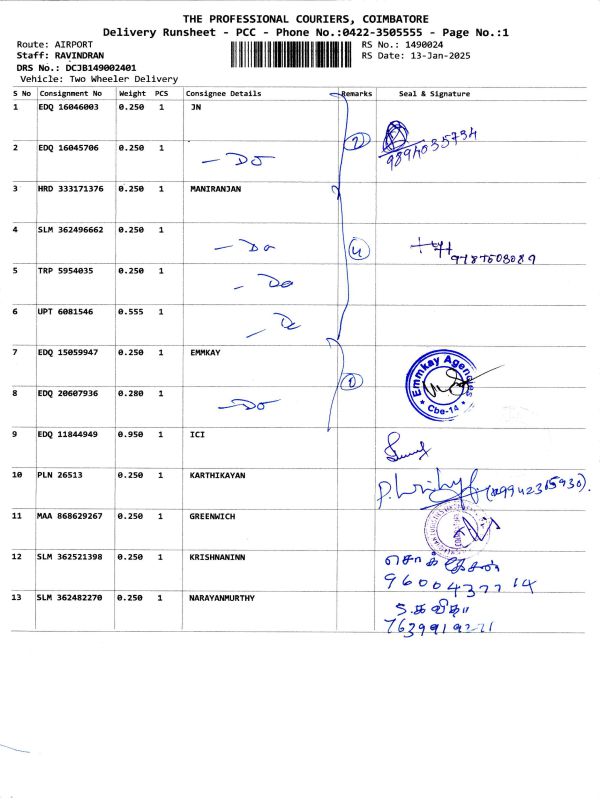 THE PROFESSIONAL COURIERS, COIMBATORE
Delivery Runsheet - PCC - Phone No.:0422-3505555 - Page No.:1
Route: AIRPORT RS No.: 1490024
Staff: RAVINDRAN RS Date: 13-Jan-2025
DRS No.: DCJB149002401
Vehicle: Two Wheeler Delivery
S No Consignment No Weight PCS Consignee Details Remarks Seal & Signature
1 EDQ 16046003 0.250 1 JN
2 9894035734
2 EDQ 16045706 0.250 1 - Do
3 HRD 333171376 0.250 1 MANIRANJAN
4 SLM 362496662 0.250 1 - Do 4
5 TRP 5954035 0.250 1 - Do
6 UPT 6081546 0.555 1 - Do
7 EDQ 15059947 0.250 1 EMMKAY
Emmkay Agencies
* Cbe-14 *
8 EDQ 20607936 0.280 1 - Do
9 EDQ 11844949 0.950 1 ICI
10 PLN 26513 0.250 1 KARTHIKAYAN
(9942315930).
11 MAA 868629267 0.250 1 GREENWICH
12 SLM 362521398 0.250 1 KRISHNAINN
13 SLM 362482270 0.250 1 NARAYANMURTHY
7639919221